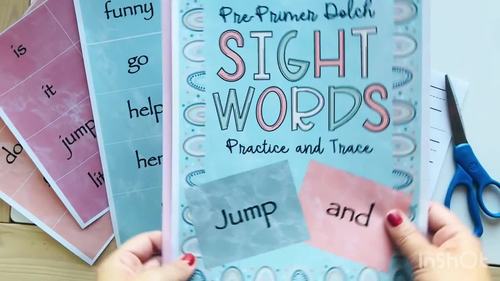 Pre-Primer Dolch
SIGHT
WORDS
Practice and Trace
Jump
and
funny
go
help
her
is
it
jump
do
InShOt